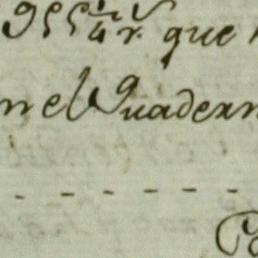 955 1/4 r.^s que
n el Quadern